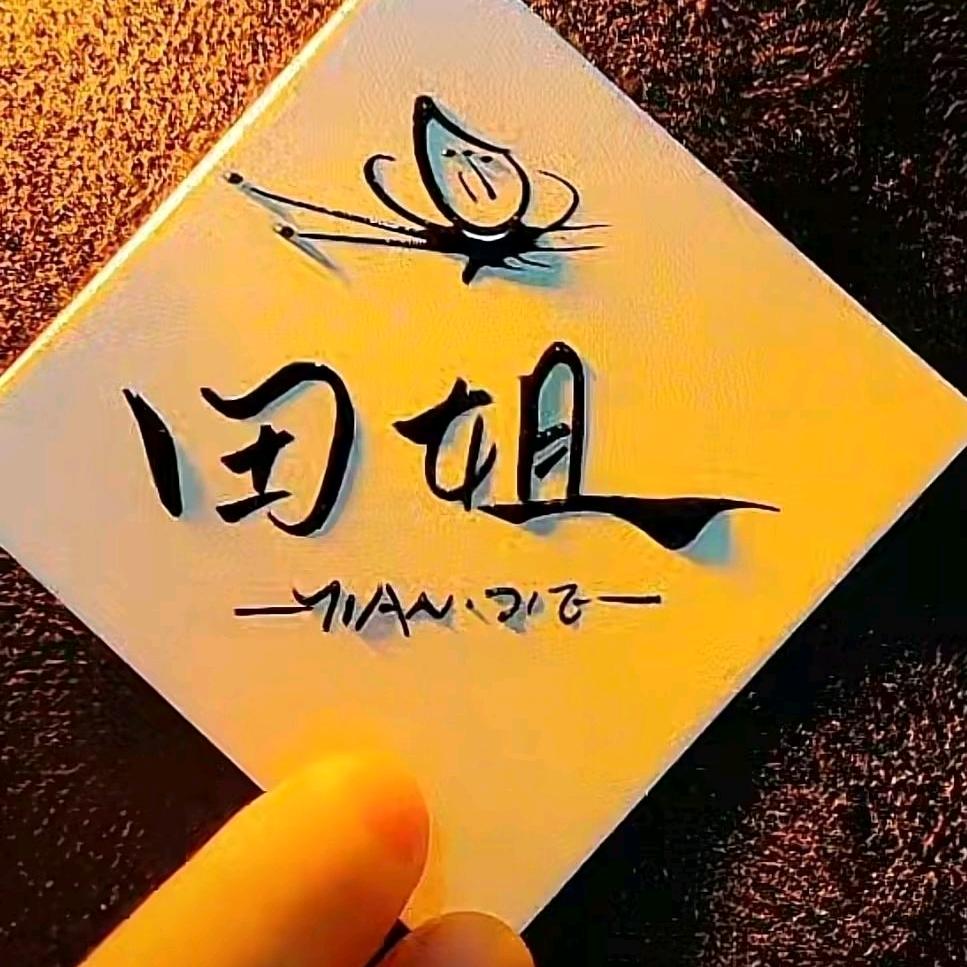 田姐
TIAN·JIE